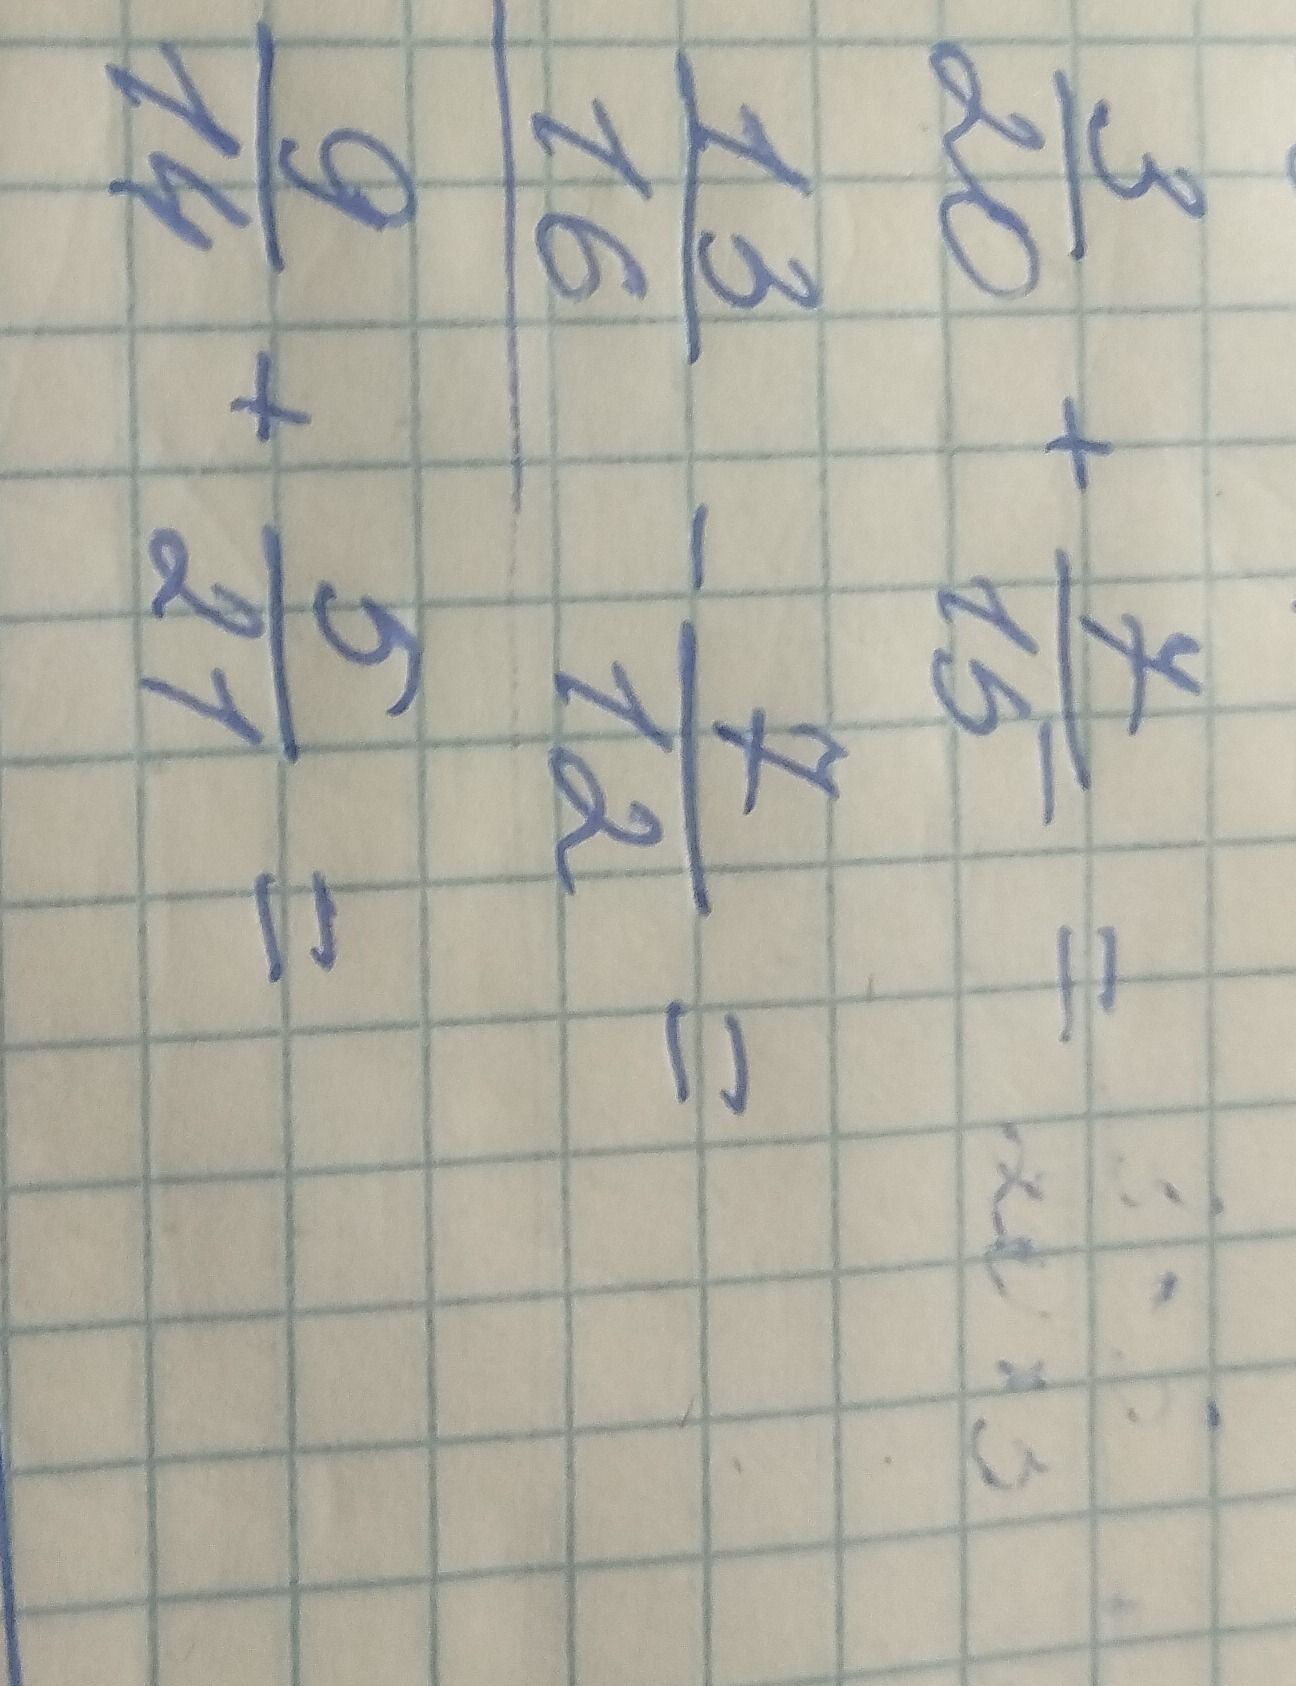 3/20 + 7/15 =
13/16 - 7/12 =
9/14 + 5/21 =